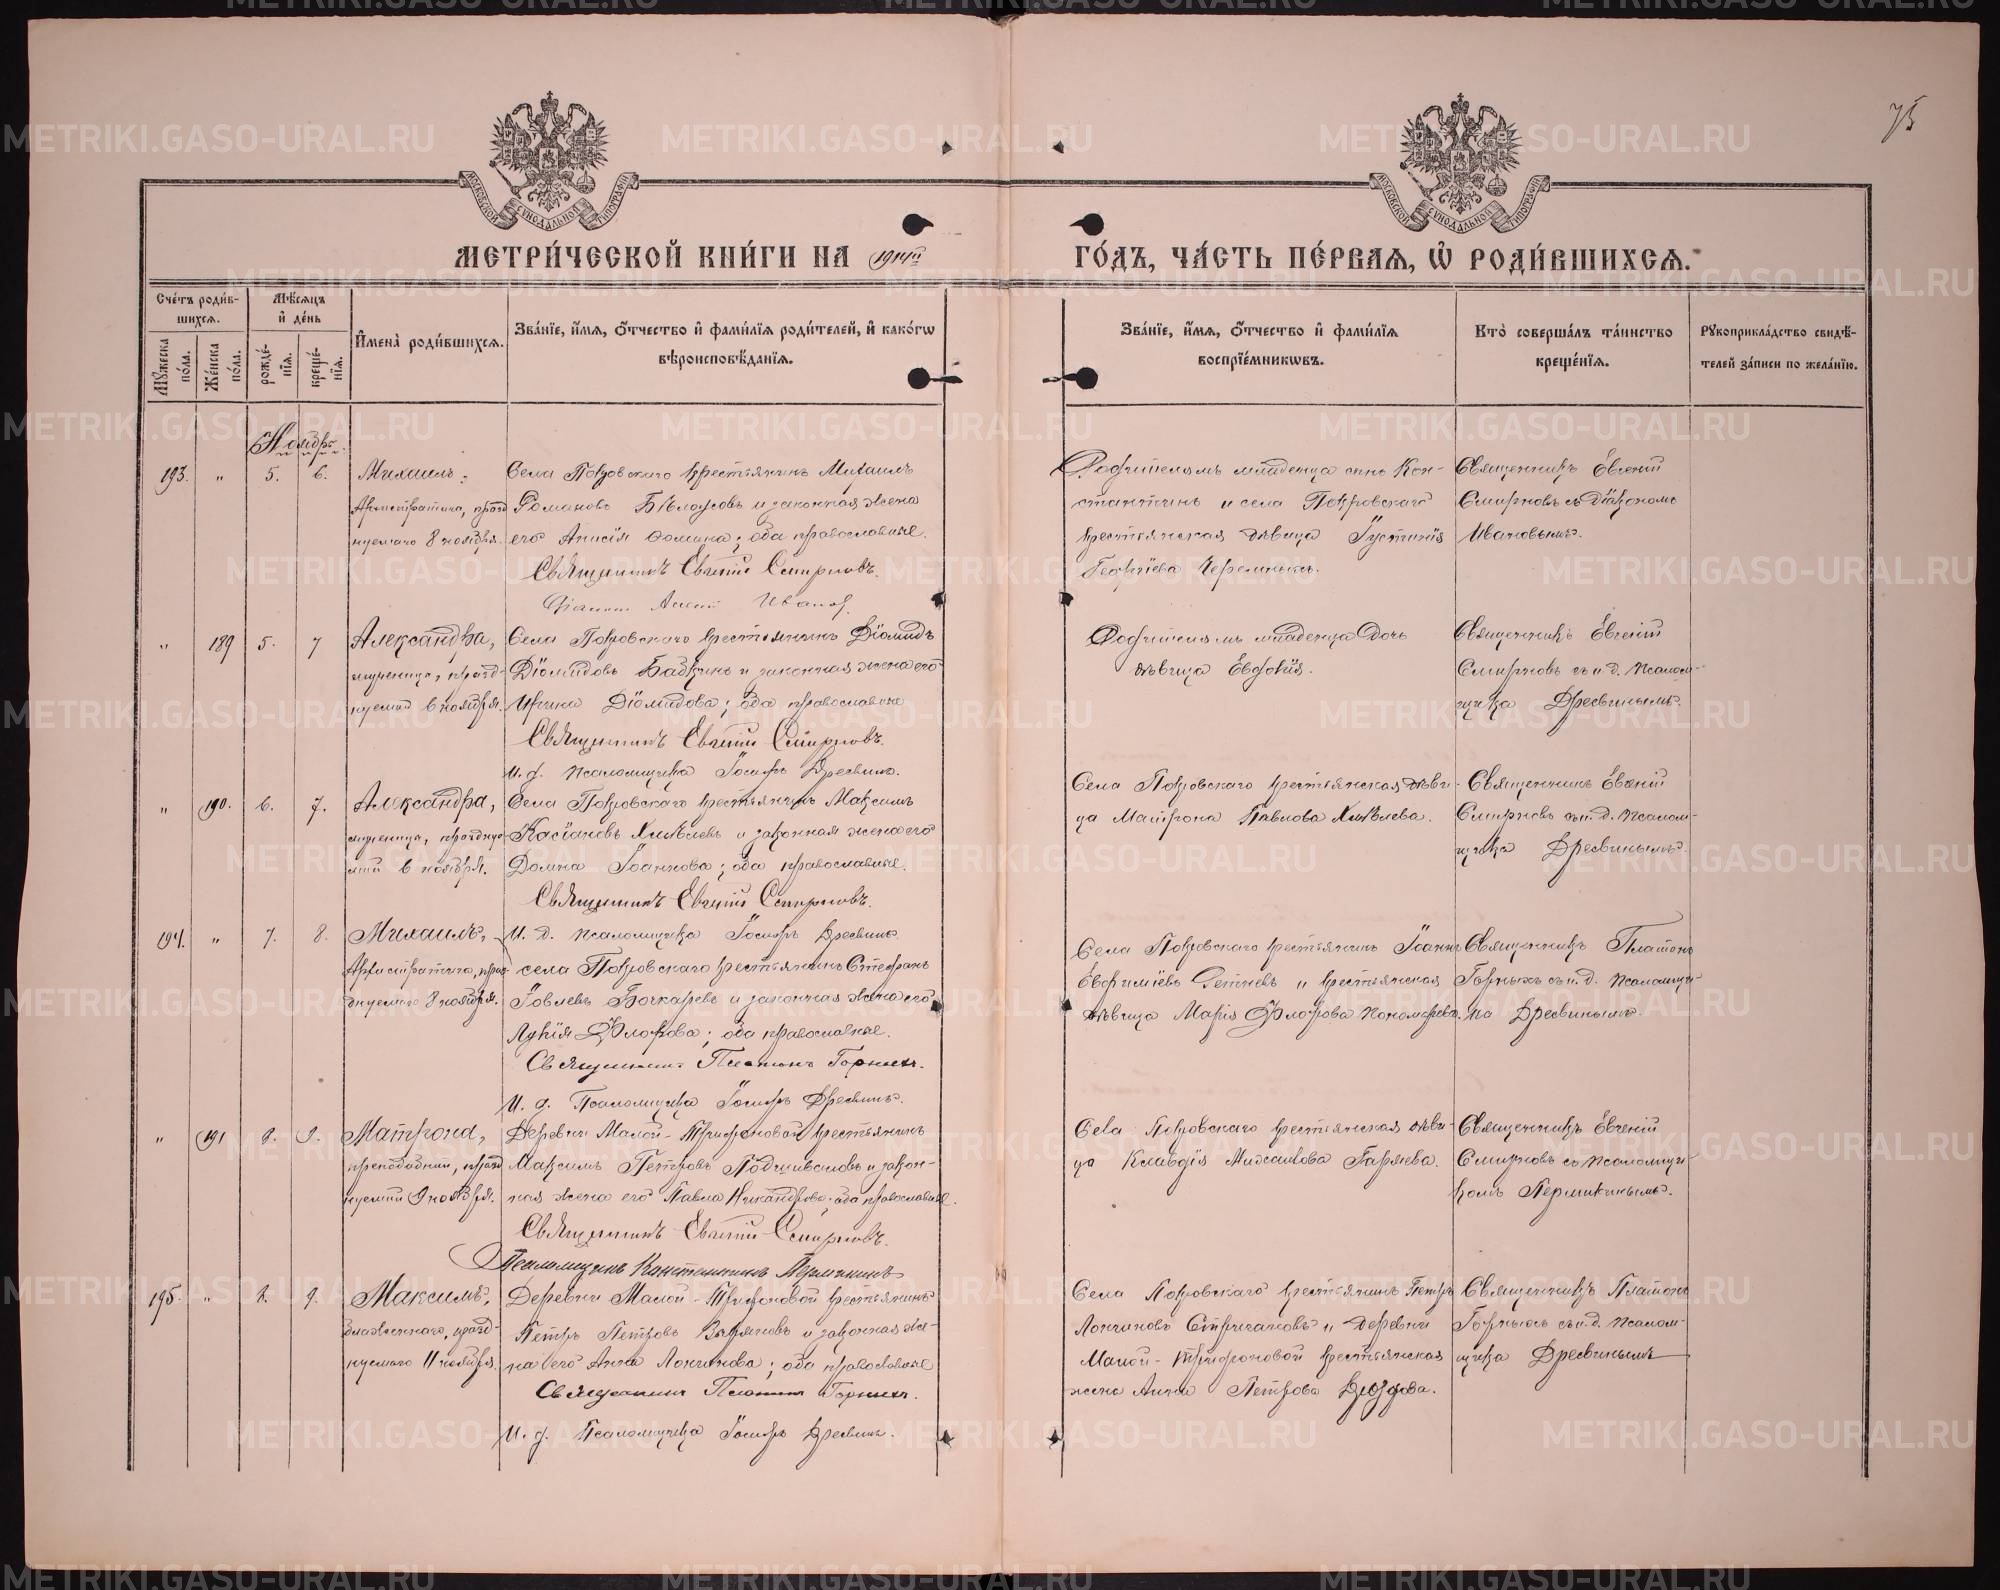 75
МЕТРИ́ЧЕСКОЙ КНИ́ГИ НА 1914й ГО́ДЪ, ЧА́СТЬ ПЕ́РВАЯ, Ѡ РОДИ́ВШИХСЯ.
Сче́тъ роди́в-
шихся.
Мѣ́сяцъ
и҆ де́нь
Мꙋ́жеска
по́ла.
Же́нска
по́ла.
рожде́-
нїя.
креще́-
нїя.
И҆мена̀ роди́вшихся.
Зва́нїе, и҆́мя, ѻ҆́тчество и҆ фами́лїя роди́телей, и҆ како́гѡ
вѣроисповѣ́данїя.
Зва́нїе, и҆́мя, ѻ҆́тчество и҆ фами́лїя
воспрїе́мникѡвъ.
Кто̀ соверша́лъ та́инство
креще́нїя.
Рꙋкоприкла́дство свидѣ́-
телей за́писи по жела́нїю.
Ноябрь
193. " 5. 6. Михаилъ,
Архистратига, празд
нуемаго 8 ноября.
Села Покровскаго крестьянинъ Михаилъ
Романовъ Бѣлоусовъ и законная жена
его Анисія Фомина; оба православные.
Священникъ Евгеній Смирновъ.
Діаконъ Ивановъ
Родителямъ младенца сынъ Кон-
стантинъ и села Покровскаго
крестьянская дѣвица Іустинія
Георгіева Черемныхъ.
Священникъ Евгеній
Смирновъ съ діакономъ
Ивановымъ.
" 189 5. 7 Александра,
мученица, празд-
нуемой 6 ноября.
Села Покровскаго крестьянинъ Діомидъ
Діомидовъ Бабкинъ и законная жена его
Ирина Діомидова; оба православные
Священникъ Евгеній Смирновъ.
И. д. псаломщика Іосифъ Дресвинъ.
Родителямъ младенца дочь
дѣвица Евдокія.
Священникъ Евгеній
Смирновъ съ и. д. псалом-
щика Дресвинымъ.
" 190. 6. 7. Александра,
мученица, празднуе-
мой 6 ноября.
Села Покровскаго крестьянинъ Максимъ
Касіановъ Хмѣлевъ и законная жена его
Домна Іоаннова; оба православные.
Священникъ Евгеній Смирновъ.
И. д. псаломщика Іосифъ Дресвинъ
Села Покровскаго крестьянская дѣви-
ца Матрона Павлова Хмѣлева.
Священникъ Евгеній
Смирновъ съ и. д. псалом-
щика Дресвинымъ.
194. " 7. 8. Михаилъ,
Архистратига, праз-
днуемаго 8 ноября.
села Покровскаго крестьянинъ Стефанъ
Іовлевъ Бочкаревъ и законная жена его
Лукія Флорова; оба православные.
Священникъ Платонъ Горныхъ.
И. д. Псаломщика Іосифъ Дресвинъ.
Села Покровскаго крестьянинъ Іоаннъ
Евфиміевъ и крестьянская
дѣвица Марія Флорова Пономарева.
Священникъ Платонъ
Горныхъ съ и. д. псаломщи-
ка Дресвинымъ.
" 191 8. 9. Матрона,
преподобныя, празд
нуемой 9 ноября.
Деревни Малой-Трифоновой крестьянинъ
Максимъ Петровъ Подшиваловъ и закон-
ная жена его Павла Никандрова; оба православные.
Священникъ Евгеній Смирновъ.
Псаломщикъ Константинъ Пермикинъ
Села Покровскаго крестьянская дѣви-
ца Клавдія Михаилова Гаряева.
Священникъ Евгеній
Смирновъ со псаломщи-
комъ Пермикинымъ.
195. " 8. 9. Максимъ,
блаженнаго, празд-
нуемаго 11 ноября.
Деревни Малой-Трифоновой крестьянинъ
Петръ Петровъ и законная же-
на его Анна Лонгинова; оба православные
Священникъ Платонъ Горныхъ.
И. д. Псаломщика Іосифъ Дресвинъ.
Села Покровскаго крестьянинъ Петръ
Лонгиновъ Стригановъ и деревни
Малой-Трифоновой крестьянская
жена Анна Петрова Дроздова.
Священникъ Платонъ
Горныхъ съ и. д. псалом-
щика Дресвинымъ